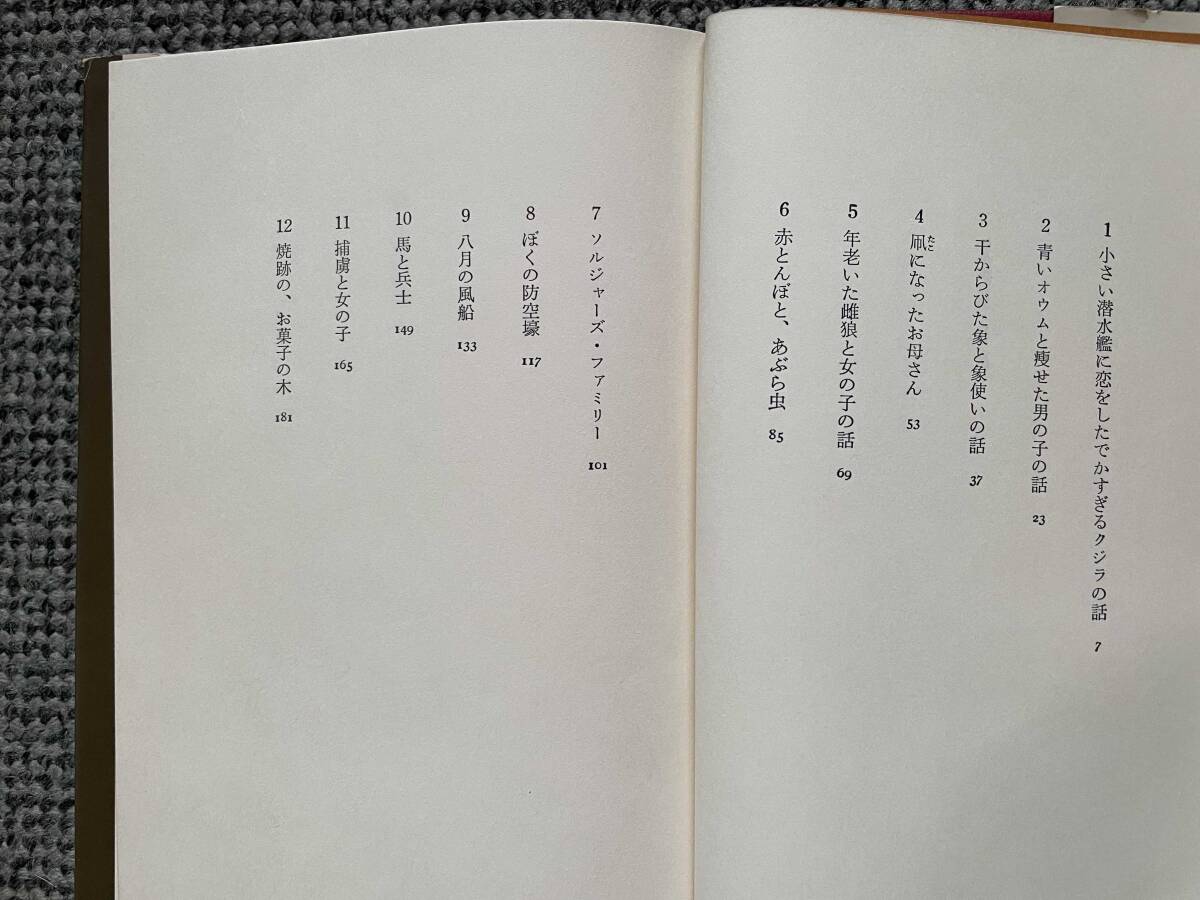 1 小さい潜水艦に恋をしたでかすぎるクジラの話 7
2 青いオウムと痩せた男の子の話 23
3 干からびた象と象使いの話 37
4 凧になったお母さん 53
たこ
5 年老いた雌狼と女の子の話 69
6 赤とんぼと、あぶら虫 85
7 ソルジャーズ・ファミリー 101
8 ぼくの防空壕 117
9 八月の風船 133
10 馬と兵士 149
11 捕虜と女の子 165
12 焼跡の、お菓子の木 181